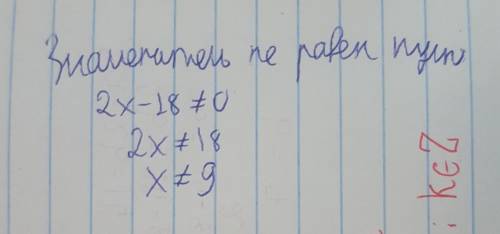 Знаменатель не равен нулю
2x-18≠0
2x≠18
x≠9
: k∈Z